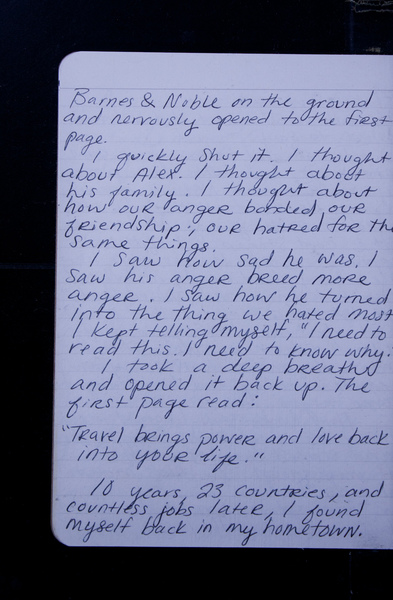 Barnes & Noble on the ground
and nervously opened to the first
page.
I quickly shut it. I thought
about Alex. I thought about
his family. I thought about
how our anger bonded our
friendship; our hatred for the
same things.
I saw how sad he was. I
saw his anger breed more
anger. I saw how he turned
into the thing we hated most
I kept telling myself, "I need to
read this. I need to know why."
I took a deep breath
and opened it back up. The
first page read:
"Travel brings power and love back
into your life."
10 years, 23 countries, and
countless jobs later, I found
myself back in my hometown.